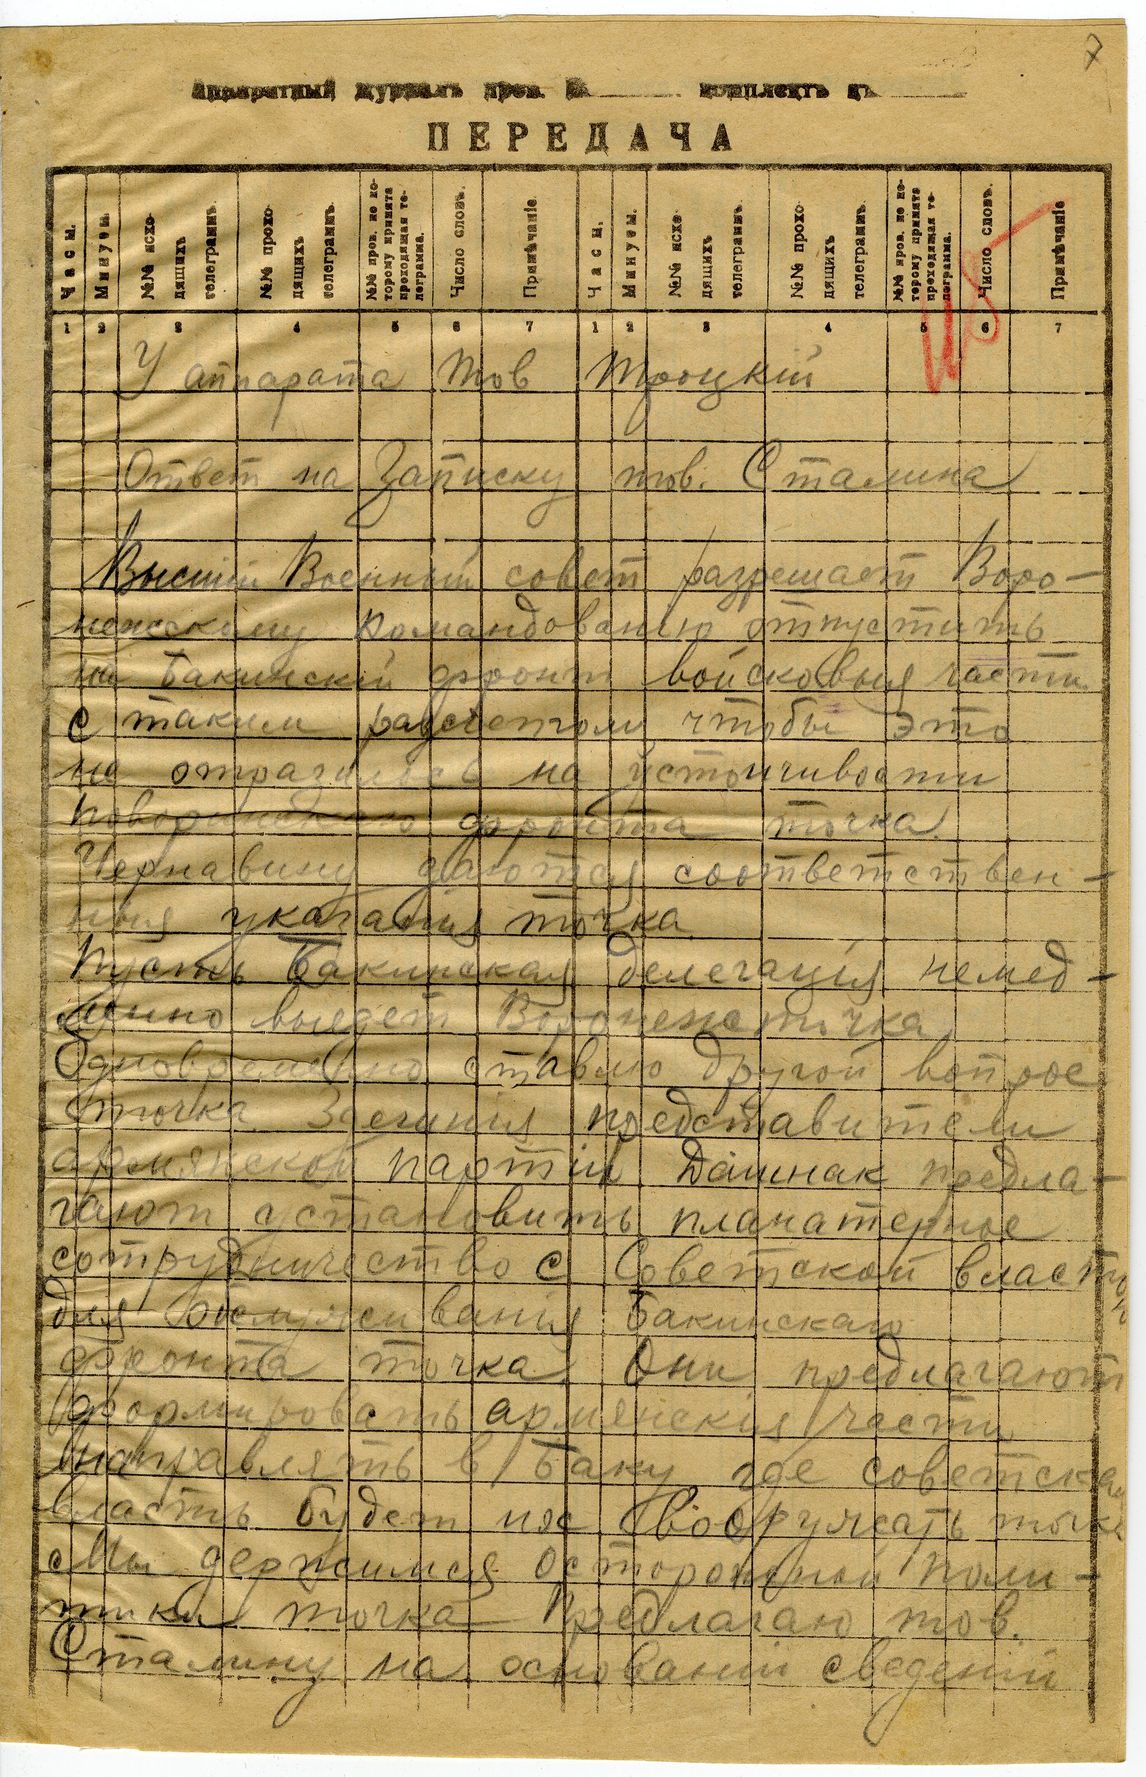 7
Аппаратный журналъ пров. № комплектъ къ
ПЕРЕДАЧА
Часы. Минуты. №№ исходящихъ телеграммъ. №№ проходящихъ телеграммъ. №№ пров. по которому принята проходящая телеграмма. Число словъ. Примѣчаніе Часы. Минуты. №№ исходящихъ телеграммъ. №№ проходящихъ телеграммъ. №№ пров. по которому принята проходящая телеграмма. Число словъ. Примѣчаніе
1 2 3 4 5 6 7 1 2 3 4 5 6 7
У аппарата тов Троцкій
Ответ на Записку тов. Сталина
Высшій Военный совет разрешает Воро-
нежскому Командованию отпустить
на Бакинскій фронт войсковыя части
с таким разсчетом чтобы это
не отразилось на устойчивости
Поворинскаго фронта точка.
Чернавину даются соответствен-
ныя указания точка
Пусть Бакинская делегація немед-
ленно выедет Воронеж точка
Одновременно ставлю другой вопрос
точка Здешнія представители
армянской партіи Дашнак предла-
гают установить планатерное
сотрудничество с Советской властью
для обслуживанія Бакинскаго
фронта точка Они предлагают
формировать армянскія части
направлять в Баку где советская
власть будет их вооружать точка
Мы держимся осторожной поли-
тики точка Предлагаю тов.
Сталину на основаніи сведеній